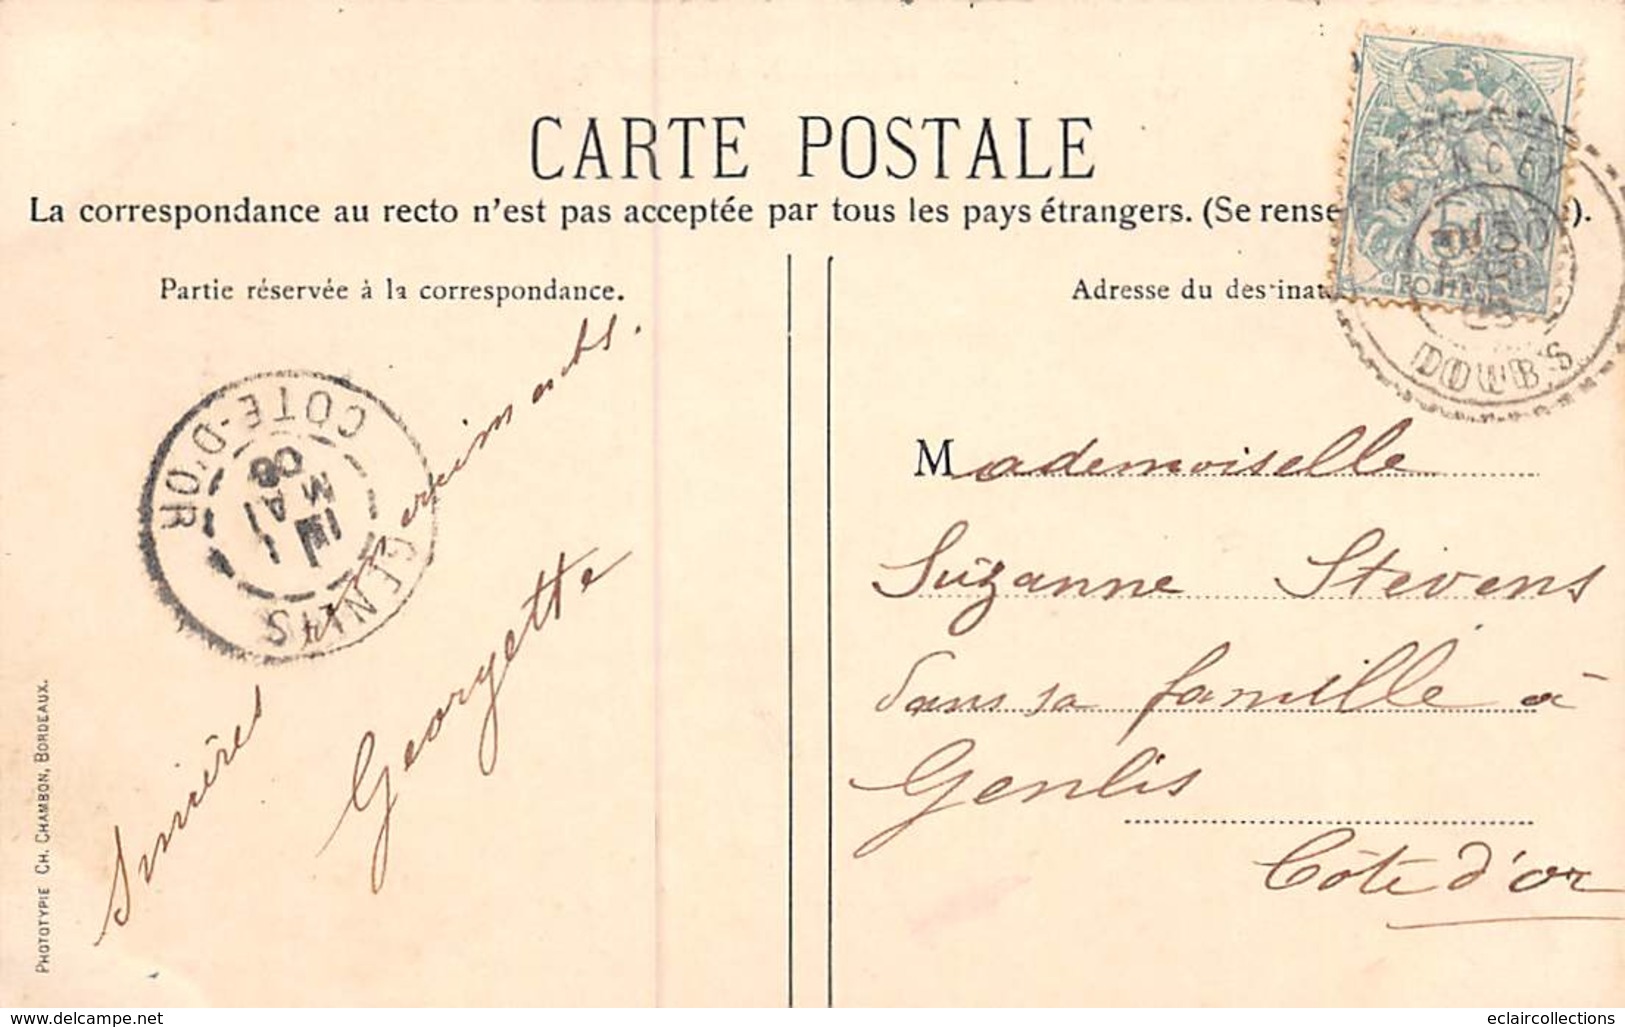 CARTE POSTALE
La correspondance au recto n'est pas acceptée par tous les pays étrangers. (Se rense ).
Partie réservée à la correspondance.
Adresse du destinat
DOUBS
CÔTE-D'OR
MAI
08
GENLIS
Sincères remerciements.
Georgette
Mademoiselle
Suzanne Stevens
dans sa famille à
Genlis
Côte d'or
PHOTOTYPIE CH. CHAMBON, BORDEAUX.
www.delcampe.net
eclaircollections